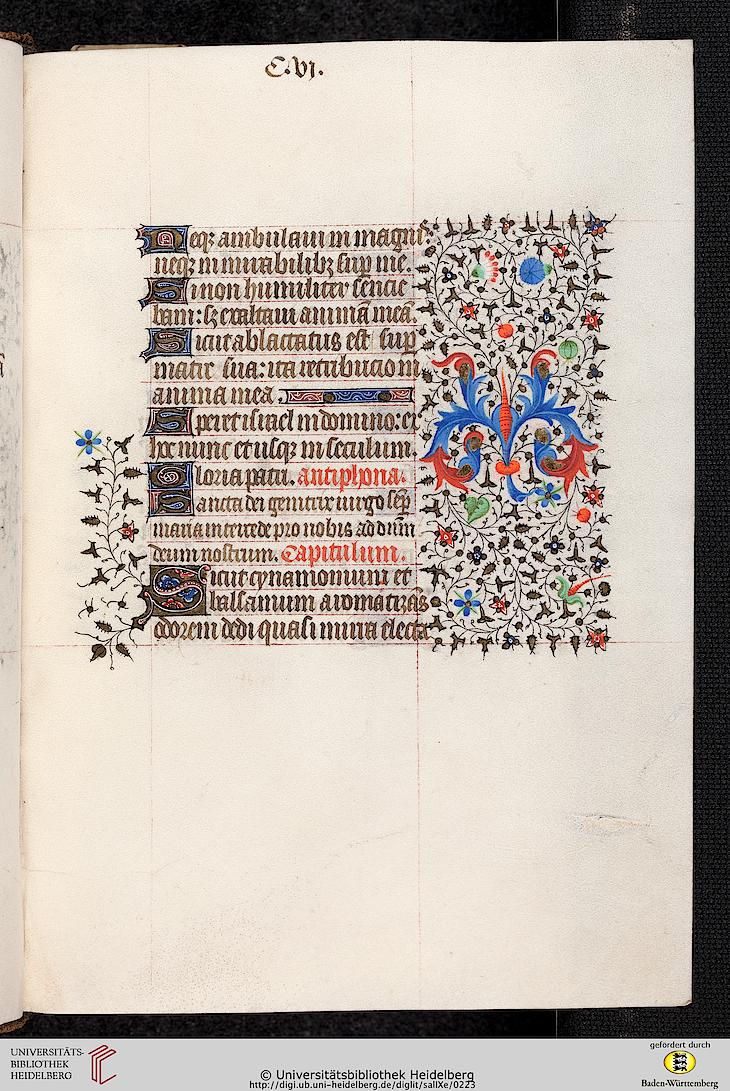 C.vj.
Neqʒ ambulaui in magnis
neqʒ in mirabilibʒ sup me.
Si non humiliter sencie
bam: sʒ exaltaui animā meā.
Sicut ablactatus est sup
matre sua: ita retribucio in
anima mea.
Speret israel in domino: ex
hoc nunc et usqʒ in seculum.
Gloria patri. antiphona.
Sancta dei genitrix uirgo sēp
maria intercede pro nobis ad dnm
deum nostrum. Capitulum.
Sicut cynamomum et
balsamum aromatizās
odorem dedi quasi mirra electa
UNIVERSITÄTS-
BIBLIOTHEK
HEIDELBERG
© Universitätsbibliothek Heidelberg
http://digi.ub.uni-heidelberg.de/diglit/sallXe/0223
gefördert durch
Baden-Württemberg